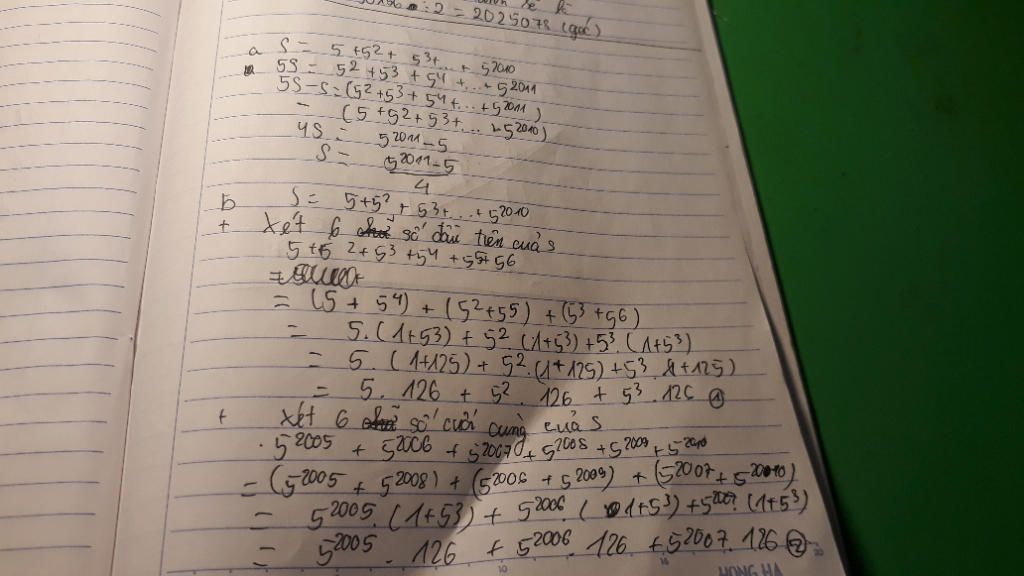 : 2 = 2025078 (góc)
a S = 5 + 5² + 5³+... + 5²⁰¹⁰
5S = 5² + 5³ + 5⁴ + ...+ 5²⁰¹¹
5S - S = (5² + 5³ + 5⁴ + ... + 5²⁰¹¹)
- (5 + 5² + 5³ + ... + 5²⁰¹⁰)
4S = 5²⁰¹¹ - 5
S = 5²⁰¹¹ - 5
4
b S = 5 + 5² + 5³ +...+ 5²⁰¹⁰
+ Xét 6 số đầu tiên của S
5 + 5² + 5³ + 5⁴ + 5⁵ + 5⁶
= (5 + 5⁴) + (5² + 5⁵) + (5³ + 5⁶)
= 5. (1 + 5³) + 5² (1 + 5³) + 5³. (1 + 5³)
= 5. (1 + 125) + 5². (1 + 125) + 5³. (1 + 125)
= 5. 126 + 5². 126 + 5³. 126 ①
+ Xét 6 số cuối cùng của S
5²⁰⁰⁵ + 5²⁰⁰⁶ + 5²⁰⁰⁷ + 5²⁰⁰⁸ + 5²⁰⁰⁹ + 5²⁰¹⁰
= (5²⁰⁰⁵ + 5²⁰⁰⁸) + (5²⁰⁰⁶ + 5²⁰⁰⁹) + (5²⁰⁰⁷ + 5²⁰¹⁰)
= 5²⁰⁰⁵. (1 + 5³) + 5²⁰⁰⁶. (1 + 5³) + 5²⁰⁰⁷. (1 + 5³)
= 5²⁰⁰⁵. 126 + 5²⁰⁰⁶. 126 + 5²⁰⁰⁷. 126 ②
10 20
HONG HA